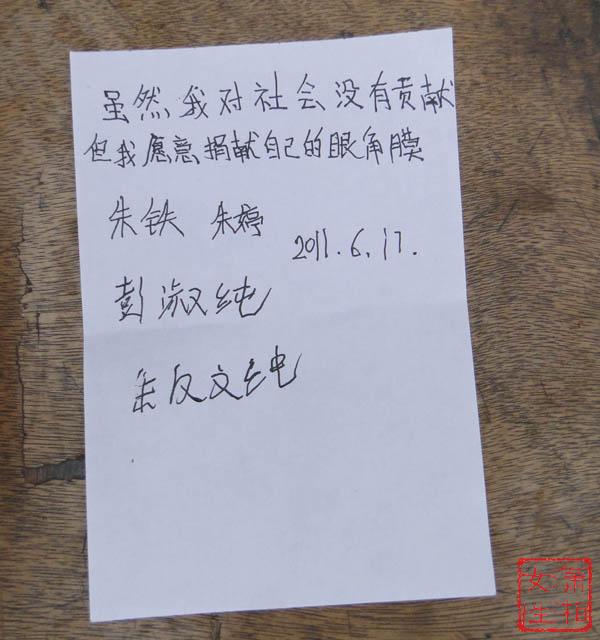 虽然我对社会没有贡献
但我愿意捐献自己的眼角膜
朱铁 朱婷
2011.6.17.
彭淑纯
朱友文
女萧
生相